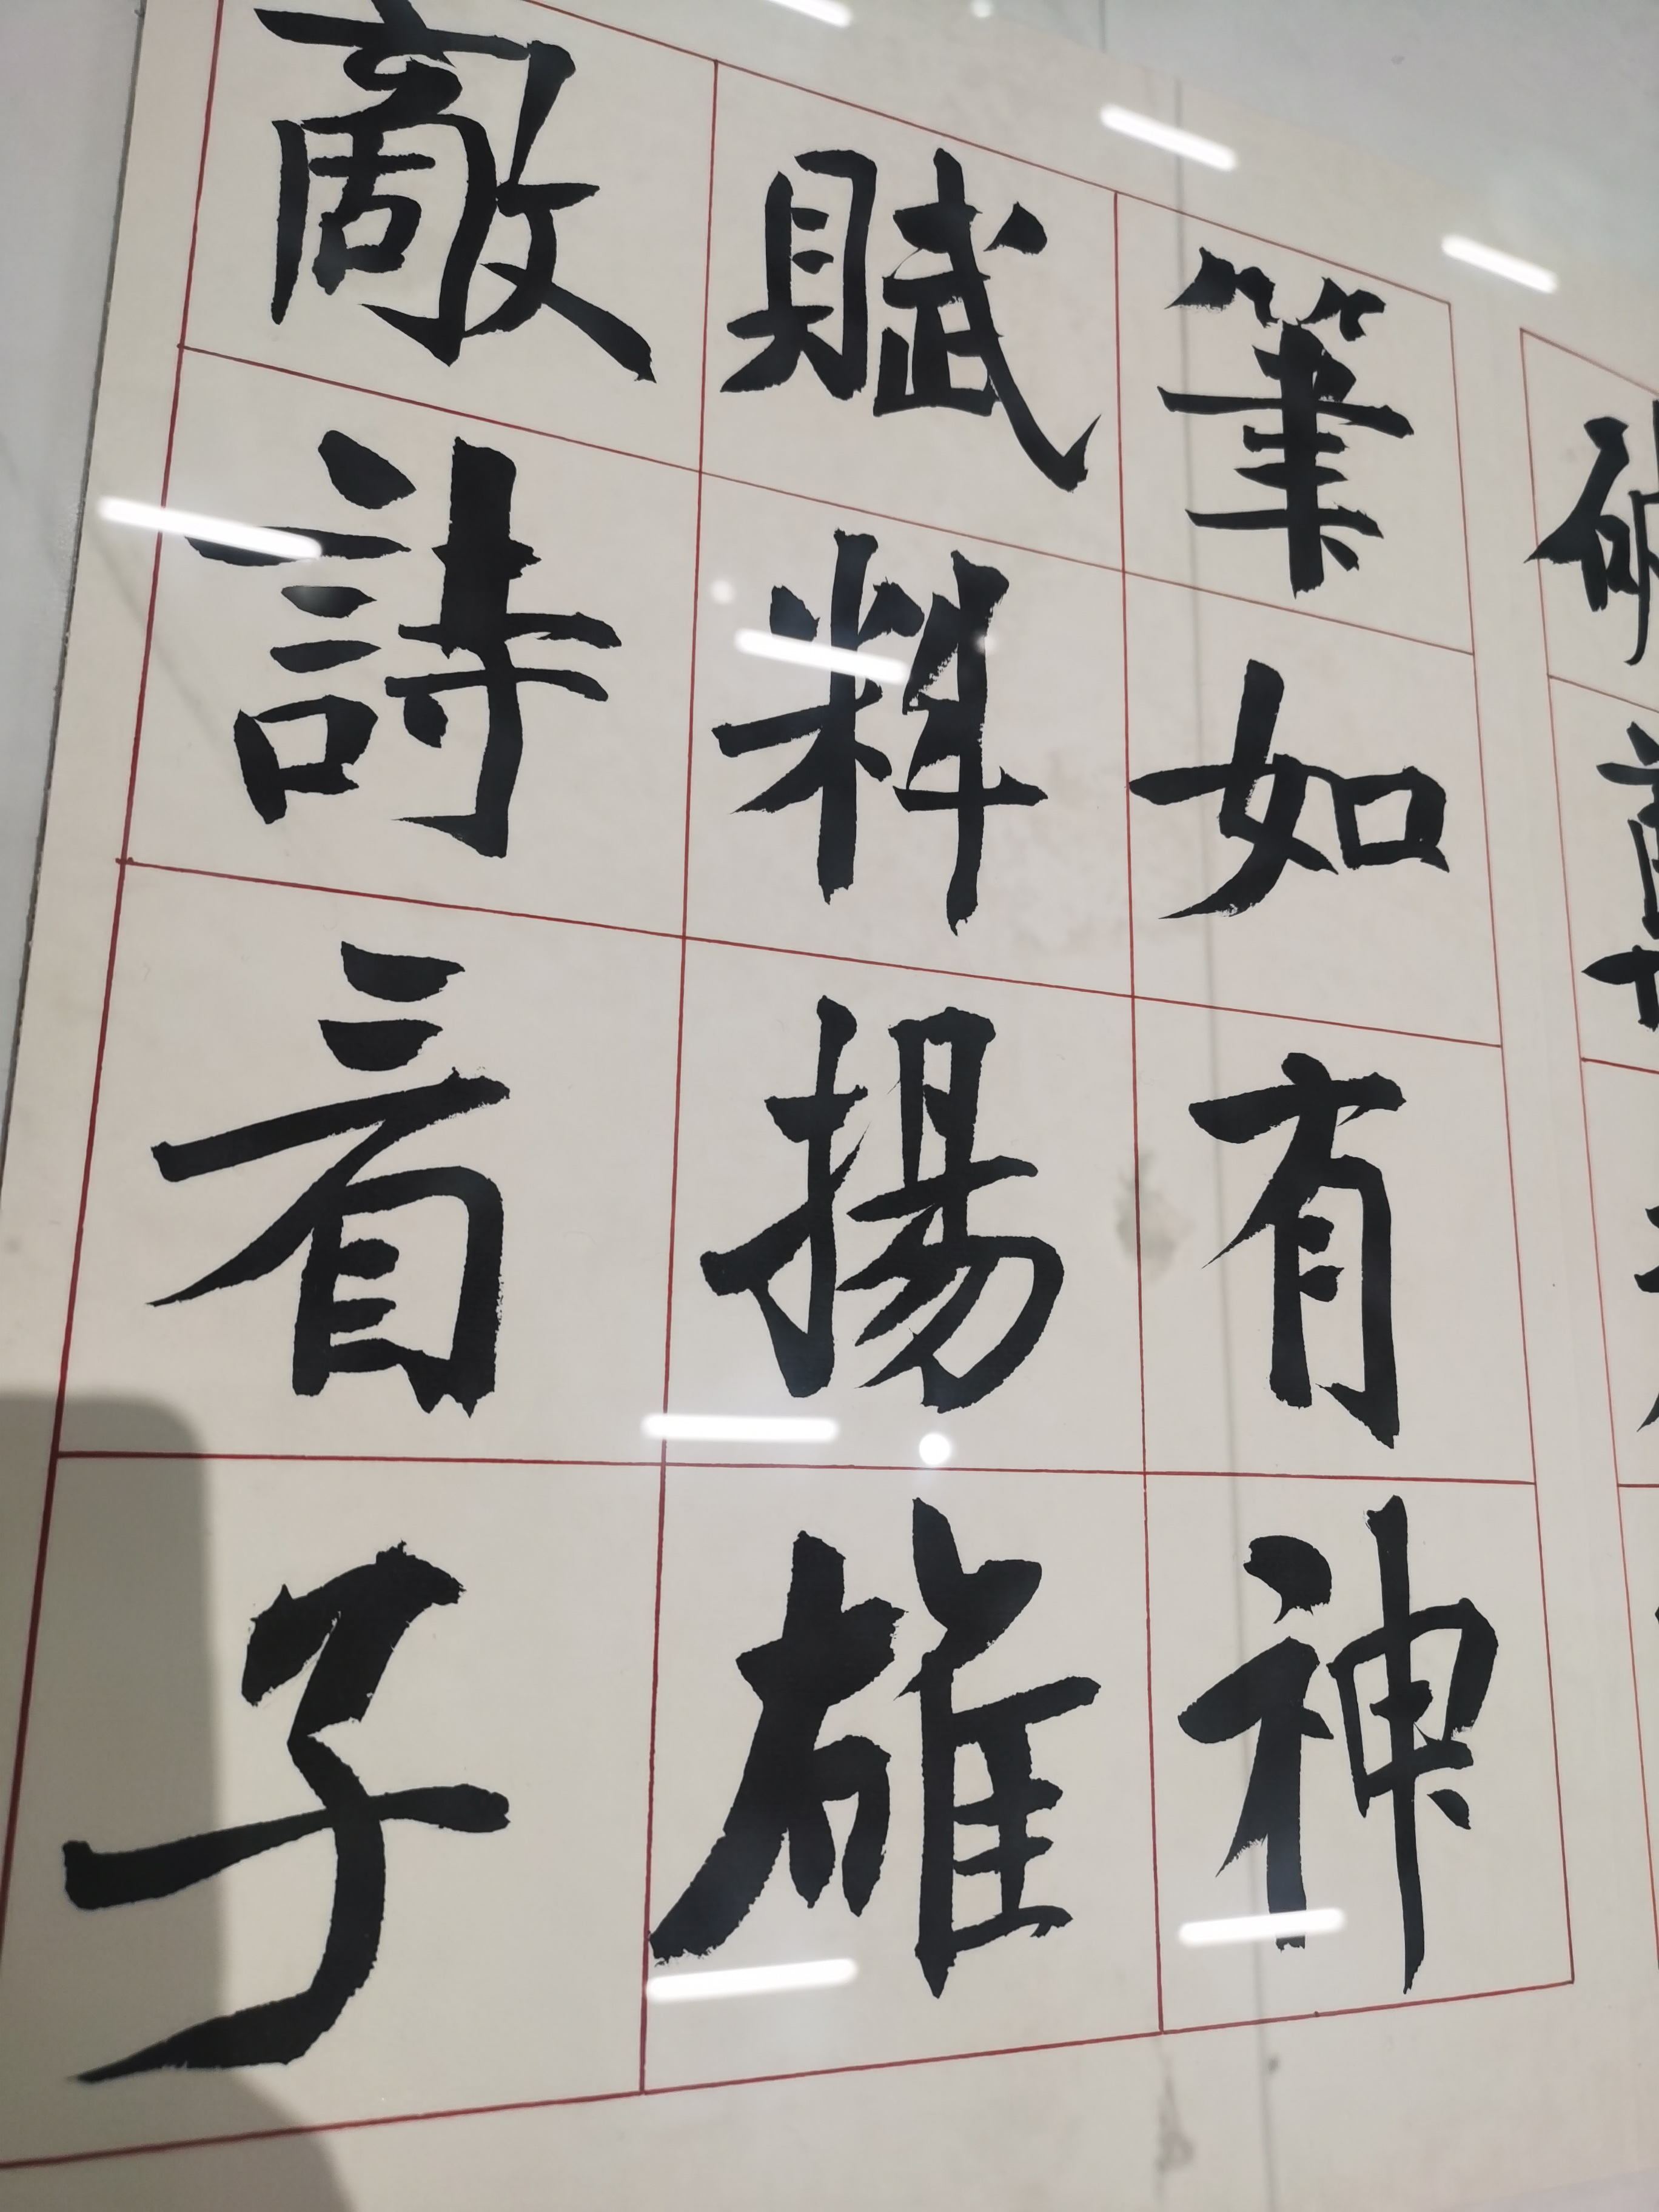 筆如有神
賦料揚雄
敵詩看子